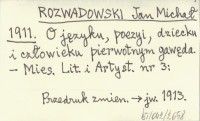 ROZWADOWSKI Jan Michał
1911. O języku, poezyi, dziecku
i człowieku pierwotnym gawęda
- Mies. Lit. i Artyst. nr 3:
Przedruk zmien. → jw. 1913.